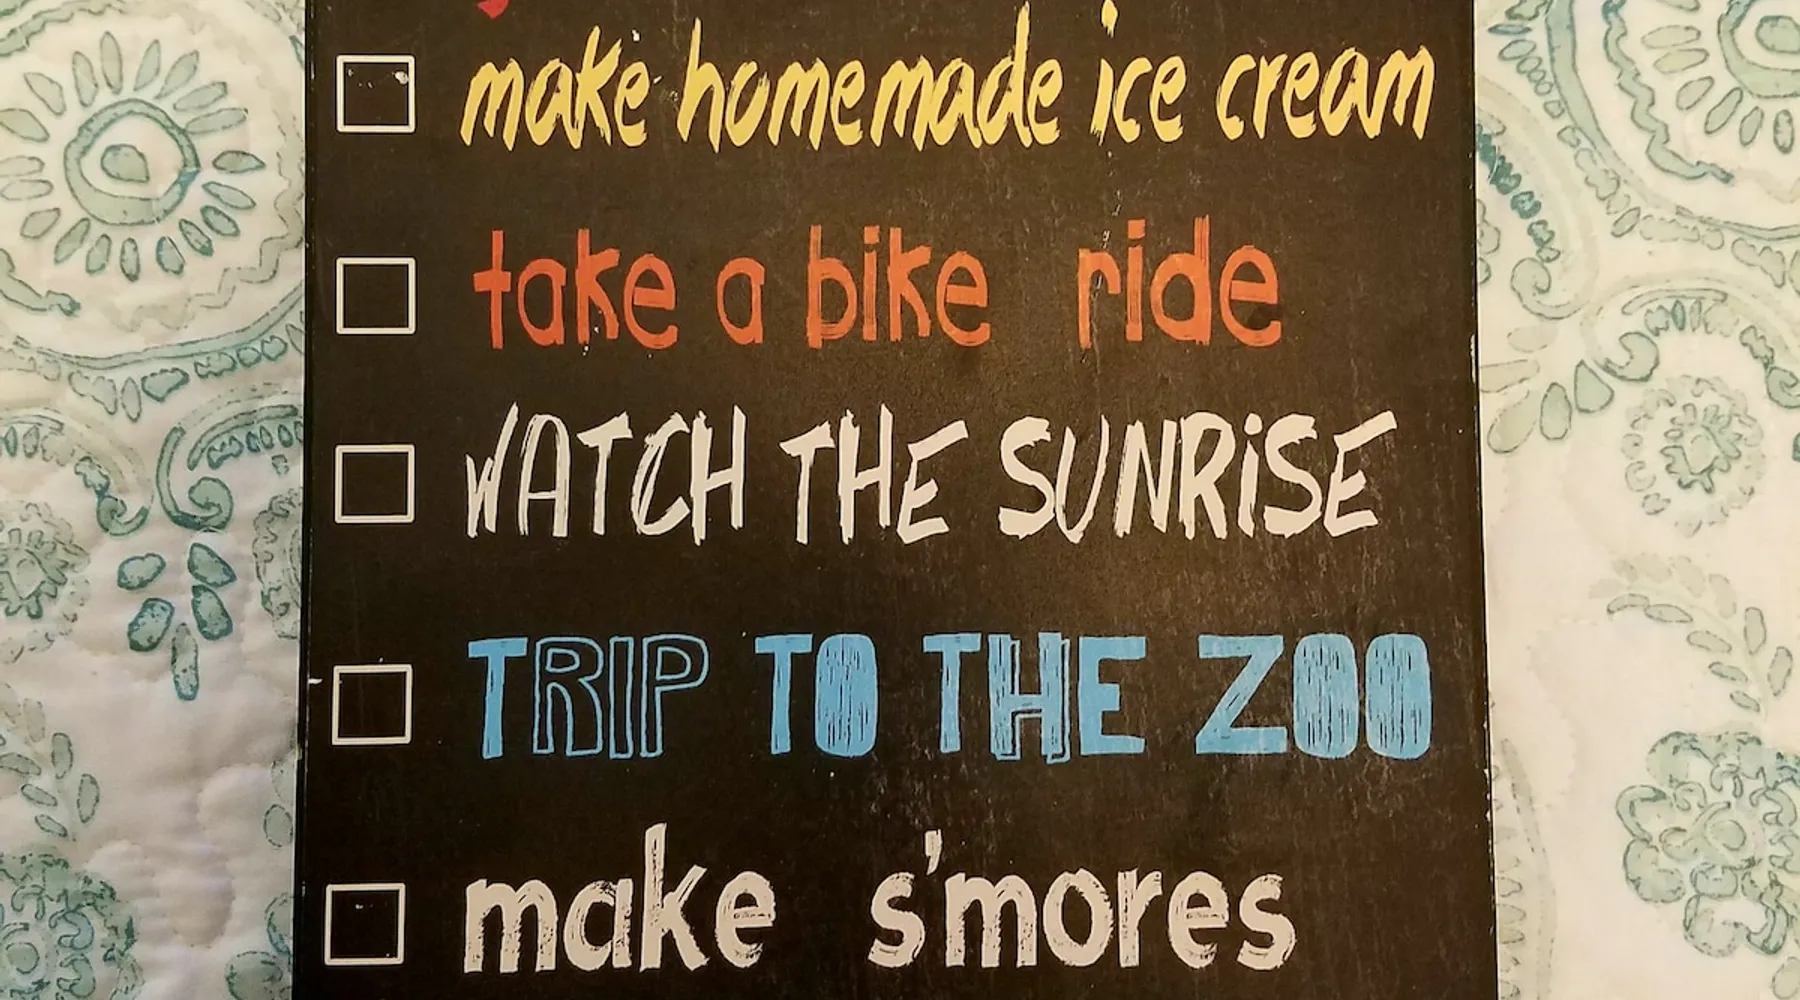 make homemade ice cream
take a bike ride
WATCH THE SUNRiSE
TRIP TO THE ZOO
make s'mores